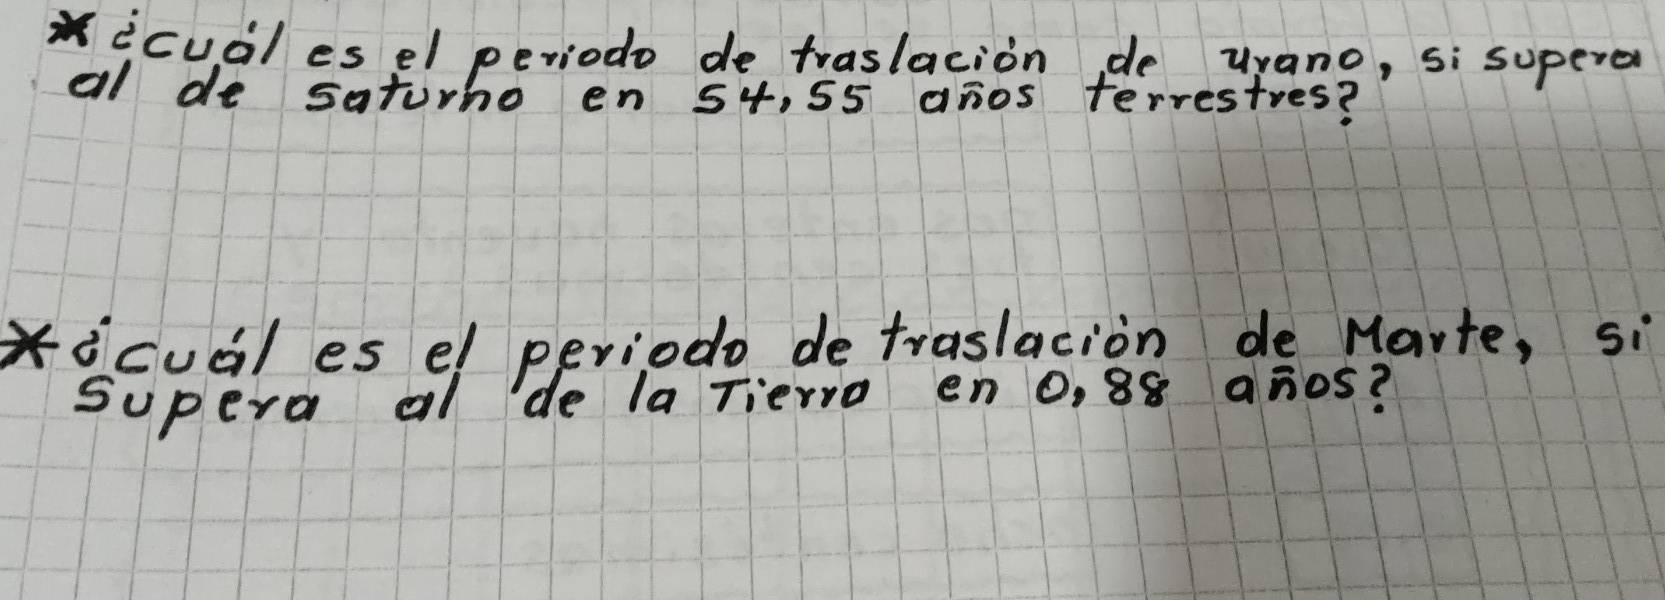 *¿cuál es el periodo de traslación de urano, si supera
al de saturno en 54,55 años terrestres?
*¿cuál es el periodo de traslación de Marte, si
supera al de la Tierra en 0,88 años?